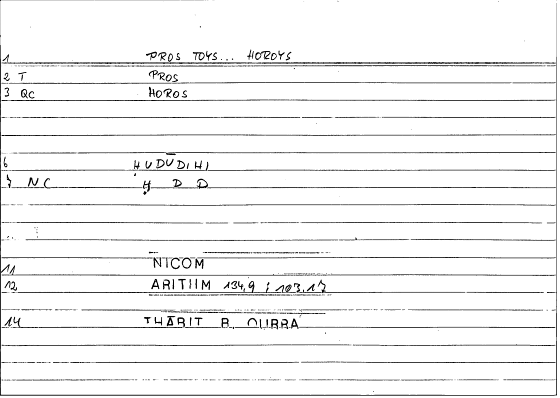 1 PROS TOYS... HOROYS
2 T PROS
3 QC HOROS
6 ḤUDŪDIHI
7 NC Ḥ D D
11 NICOM
12 ARITHM 134,9 ; 103,17
14 THĀBIT B. QURRA